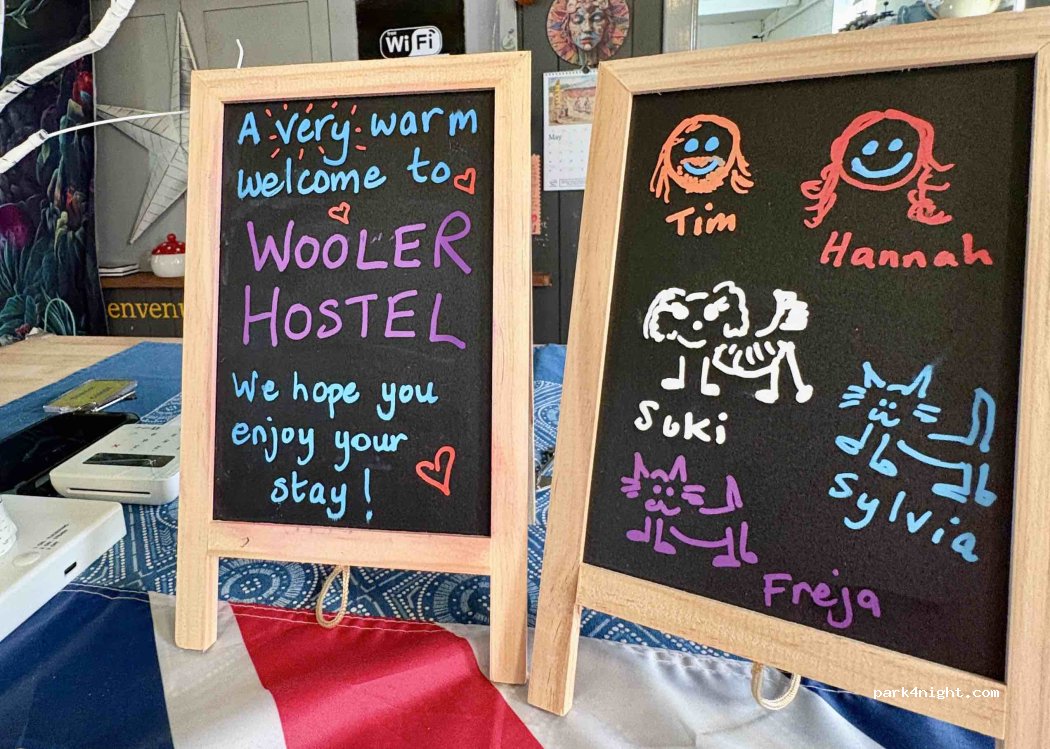 THE
WiFi
May
envenu
A very warm
welcome to
WOOLER
HOSTEL
We hope you
enjoy your
stay!
Tim
Hannah
Suki
Sylvia
Freja
park4night.com